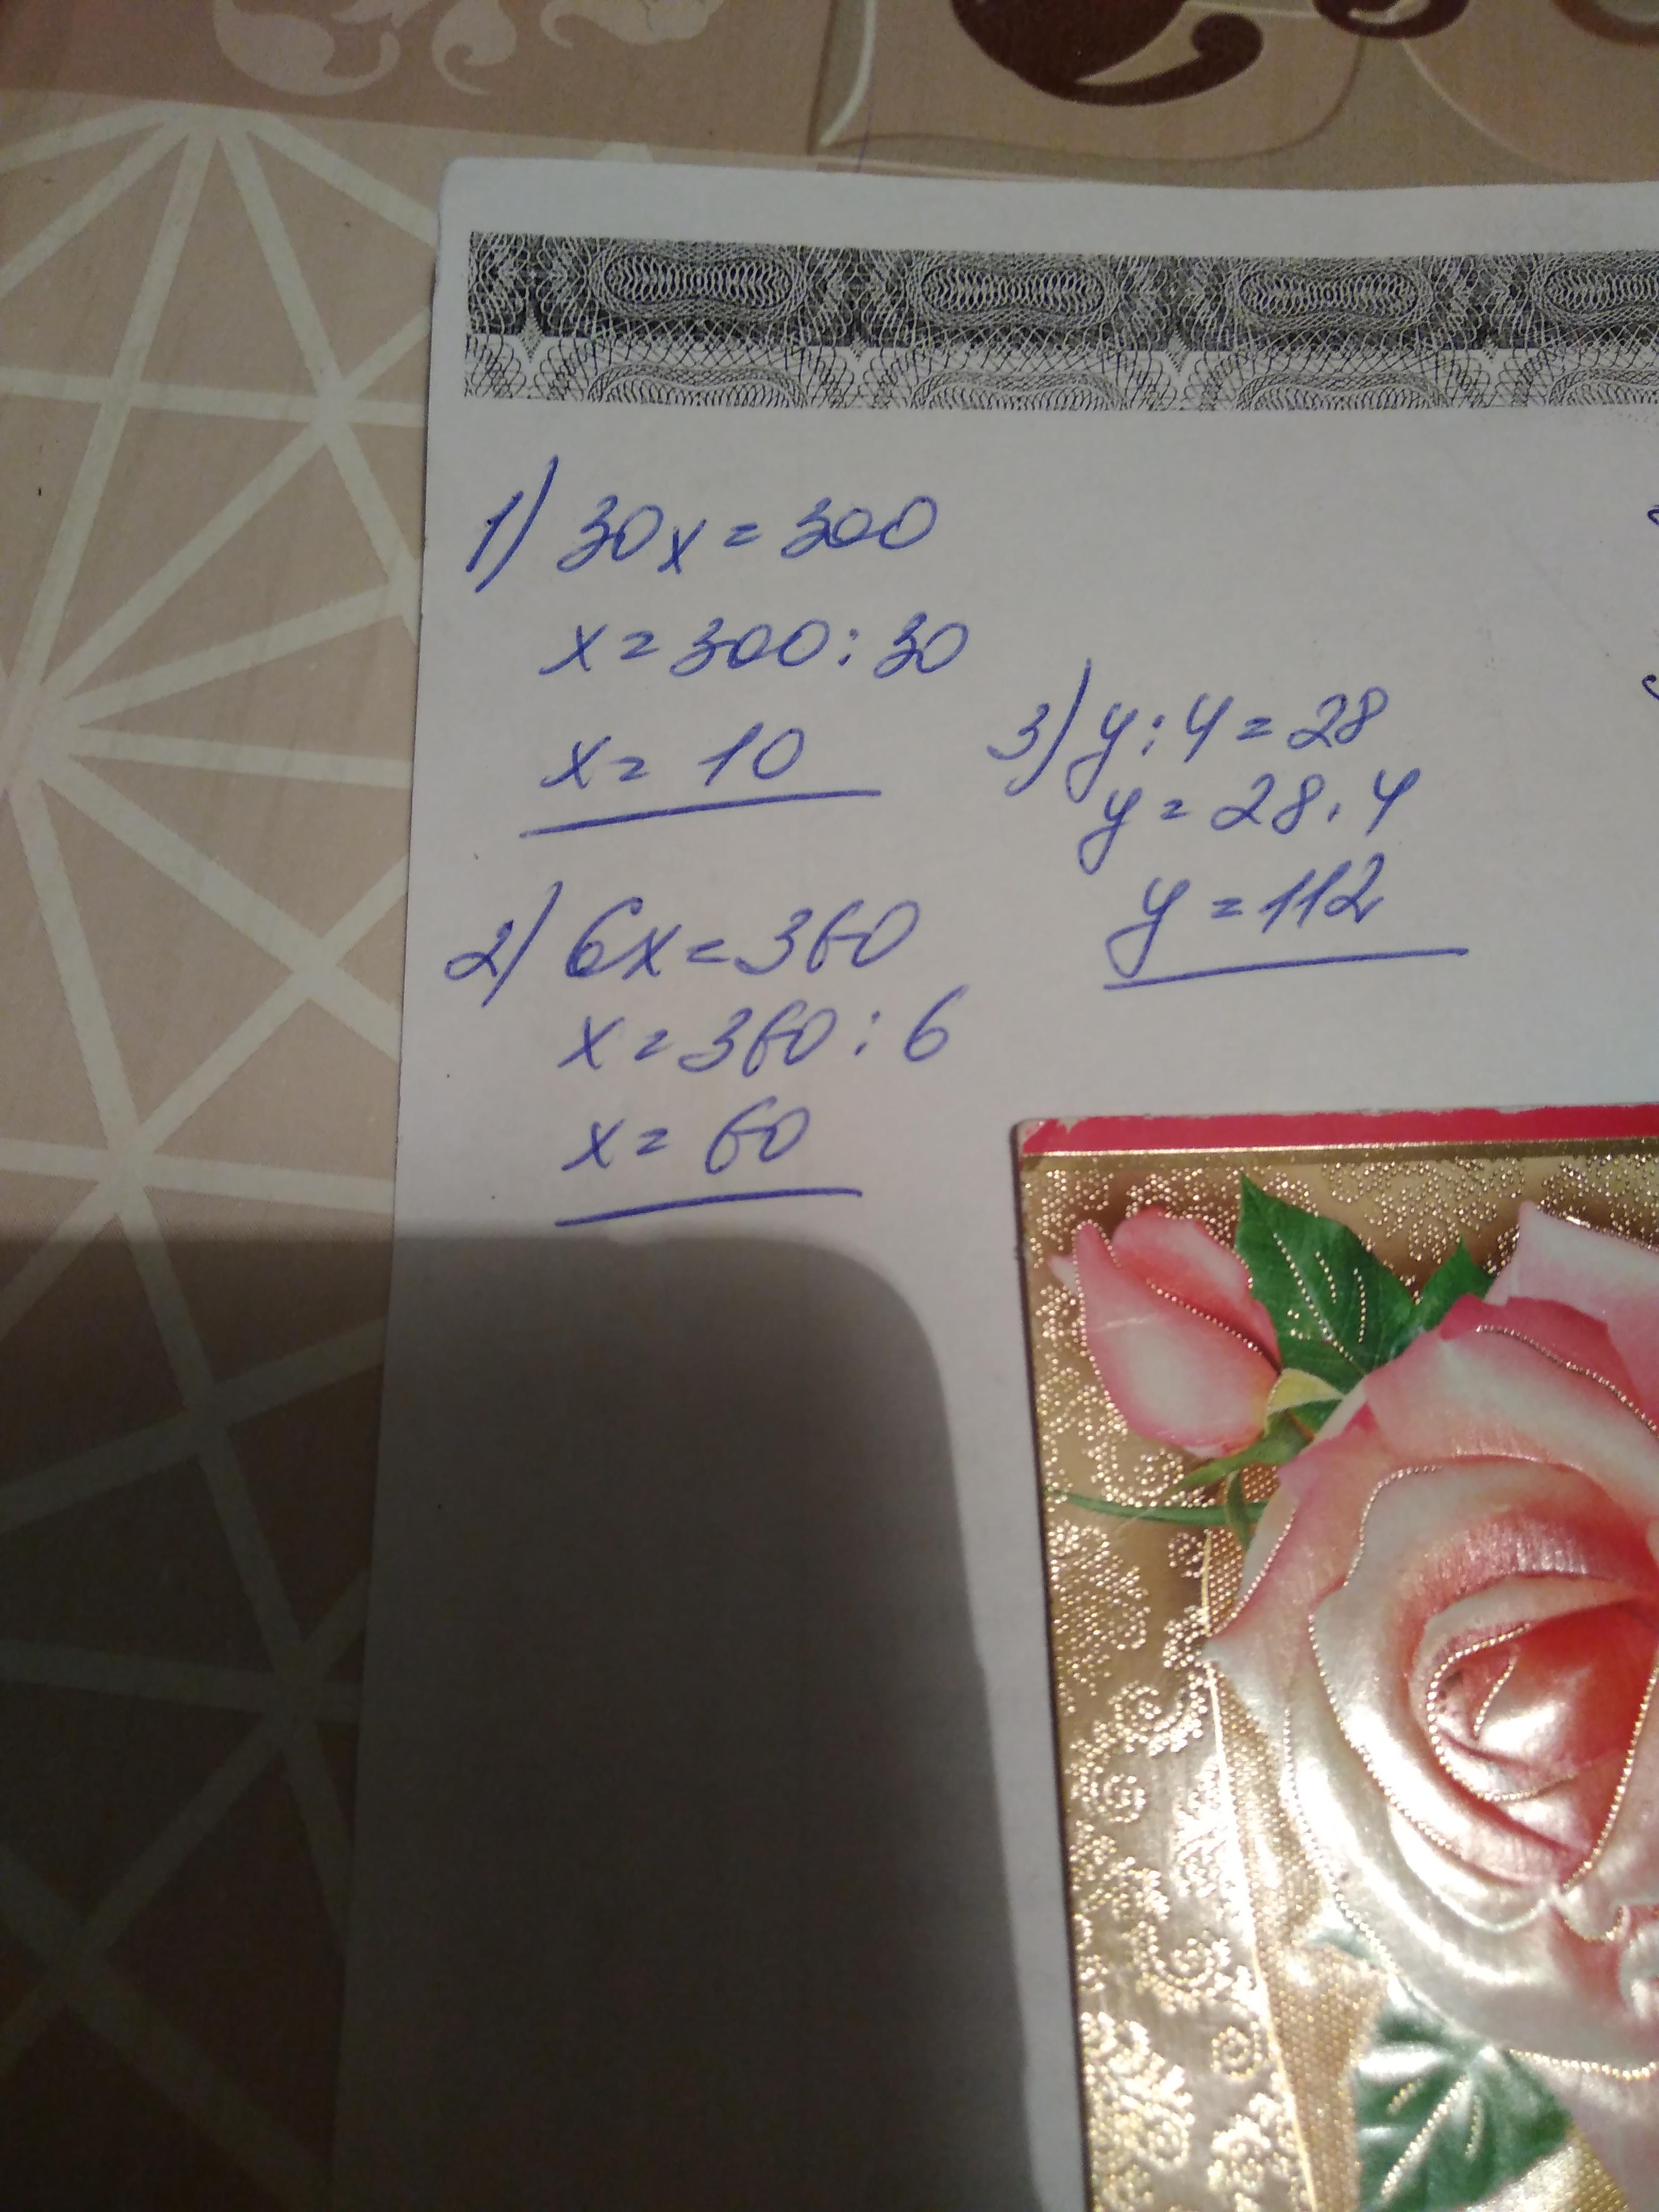 1) 30x = 300
x = 300 : 30
x = 10
2) 6x = 360
x = 360 : 6
x = 60
3) y : 4 = 28
y = 28 . 4
y = 112